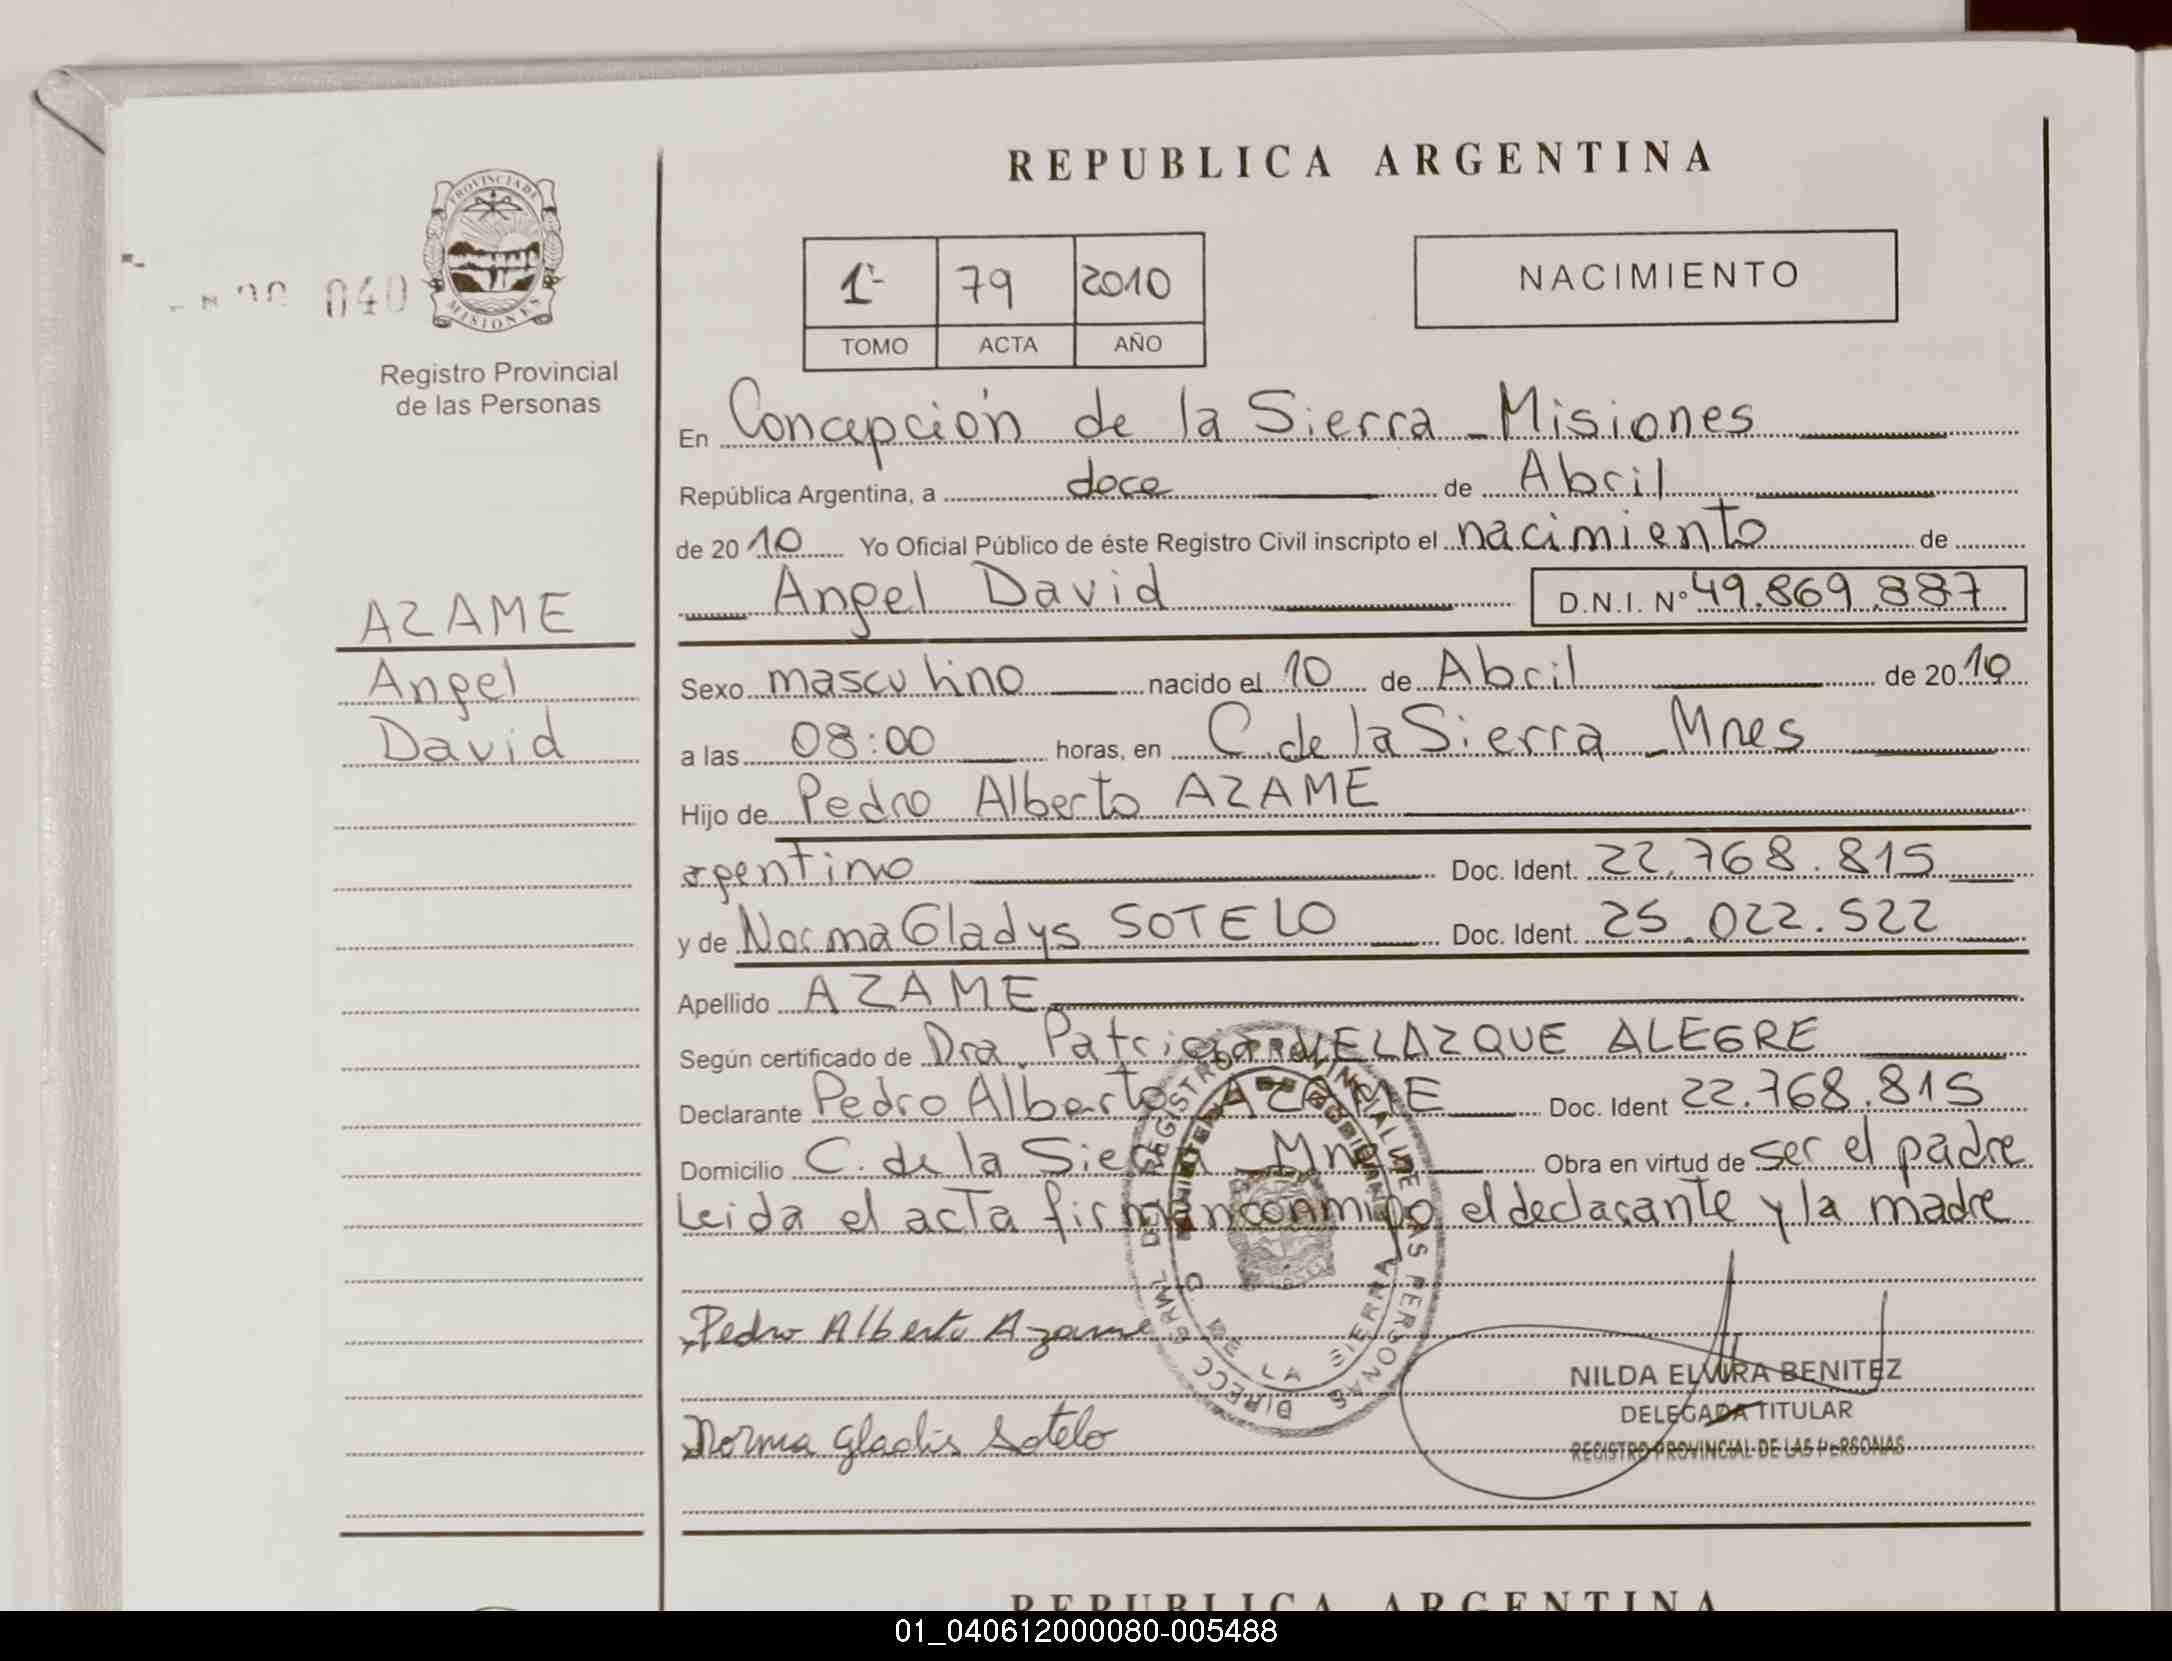 REPUBLICA ARGENTINA
PROVINCIA DE MISIONES
040
Registro Provincial
de las Personas
1º 79 2010
TOMO ACTA AÑO
NACIMIENTO
En Concepción de la Sierra - Misiones
República Argentina, a doce de Abril
de 2010 Yo Oficial Público de éste Registro Civil inscripto el nacimiento de
Angel David D.N.I. Nº 49.869.887
AZAME
Angel
David
Sexo masculino nacido el 10 de Abril de 2010
a las 08:00 horas, en C. de la Sierra - Mnes
Hijo de Pedro Alberto AZAME
argentino Doc. Ident. 22.768.815
y de Norma Gladys SOTELO Doc. Ident. 25.022.522
Apellido AZAME
Según certificado de Dra. Patricia VELAZQUE ALEGRE
Declarante Pedro Alberto AZAME Doc. Ident 22.768.815
Domicilio C. de la Sierra - Mnes Obra en virtud de ser el padre
Leida el acta firman conmigo el declarante y la madre
Pedro Alberto Azame
Norma Gladis Sotelo
DIRECC GRAL DEL REGISTRO PROVINCIAL DE LAS PERSONAS
NILDA ELVIRA BENITEZ
DELEGADA TITULAR
REGISTRO PROVINCIAL DE LAS PERSONAS
REPUBLICA ARGENTINA
01_040612000080-005488